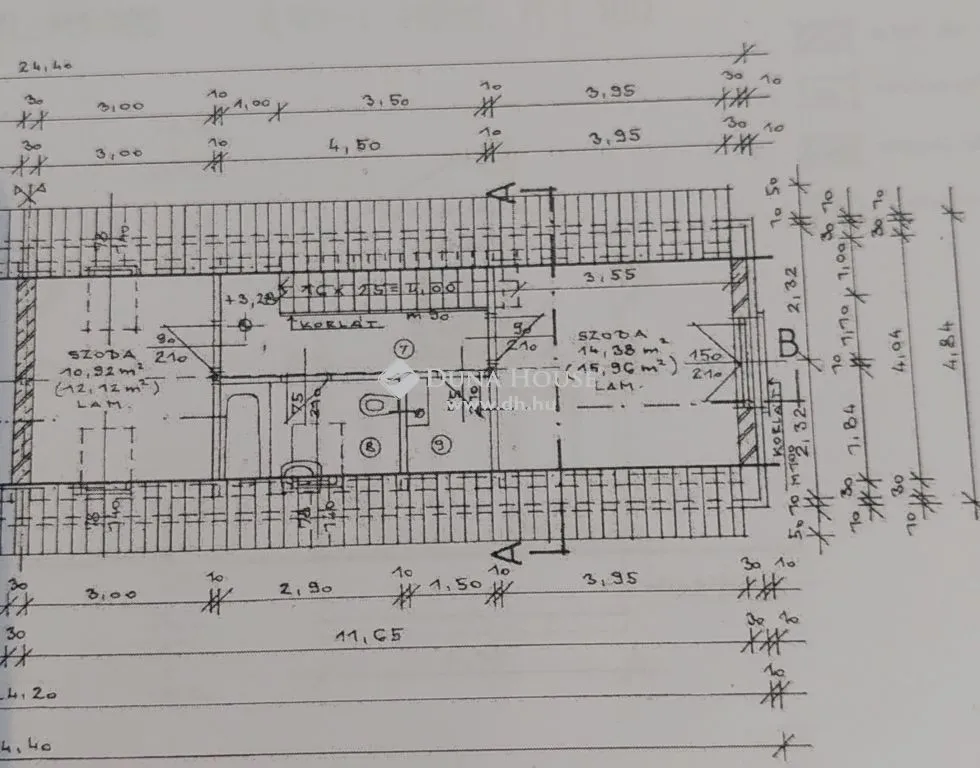 24,40
30 3,00 10 1,00 3,50 10 3,95 30 10
30 3,00 10 4,50 10 3,95 30 10
A
78
140
16 x 25 = 4,00
m 90
3,55
KORLÁT
7
90
210
SZOBA
10,92 m²
(12,12 m²)
LAM.
90
210
SZOBA
14,38 m²
(15,96 m²)
LAM.
150
210
B
KORLÁT
M 100
75
210
75
210
8
9
DUNA HOUSE
www.dh.hu
78
140
78
140
A
50
10
2,32
10
2,32
10
50
30 10
1,00
1,10
1,84
30
10
30 10
4,04
30
10
4,84
30 3,00 10 2,90 10 1,50 10 3,95 30 10
30 11,65 30
4,20
4,40